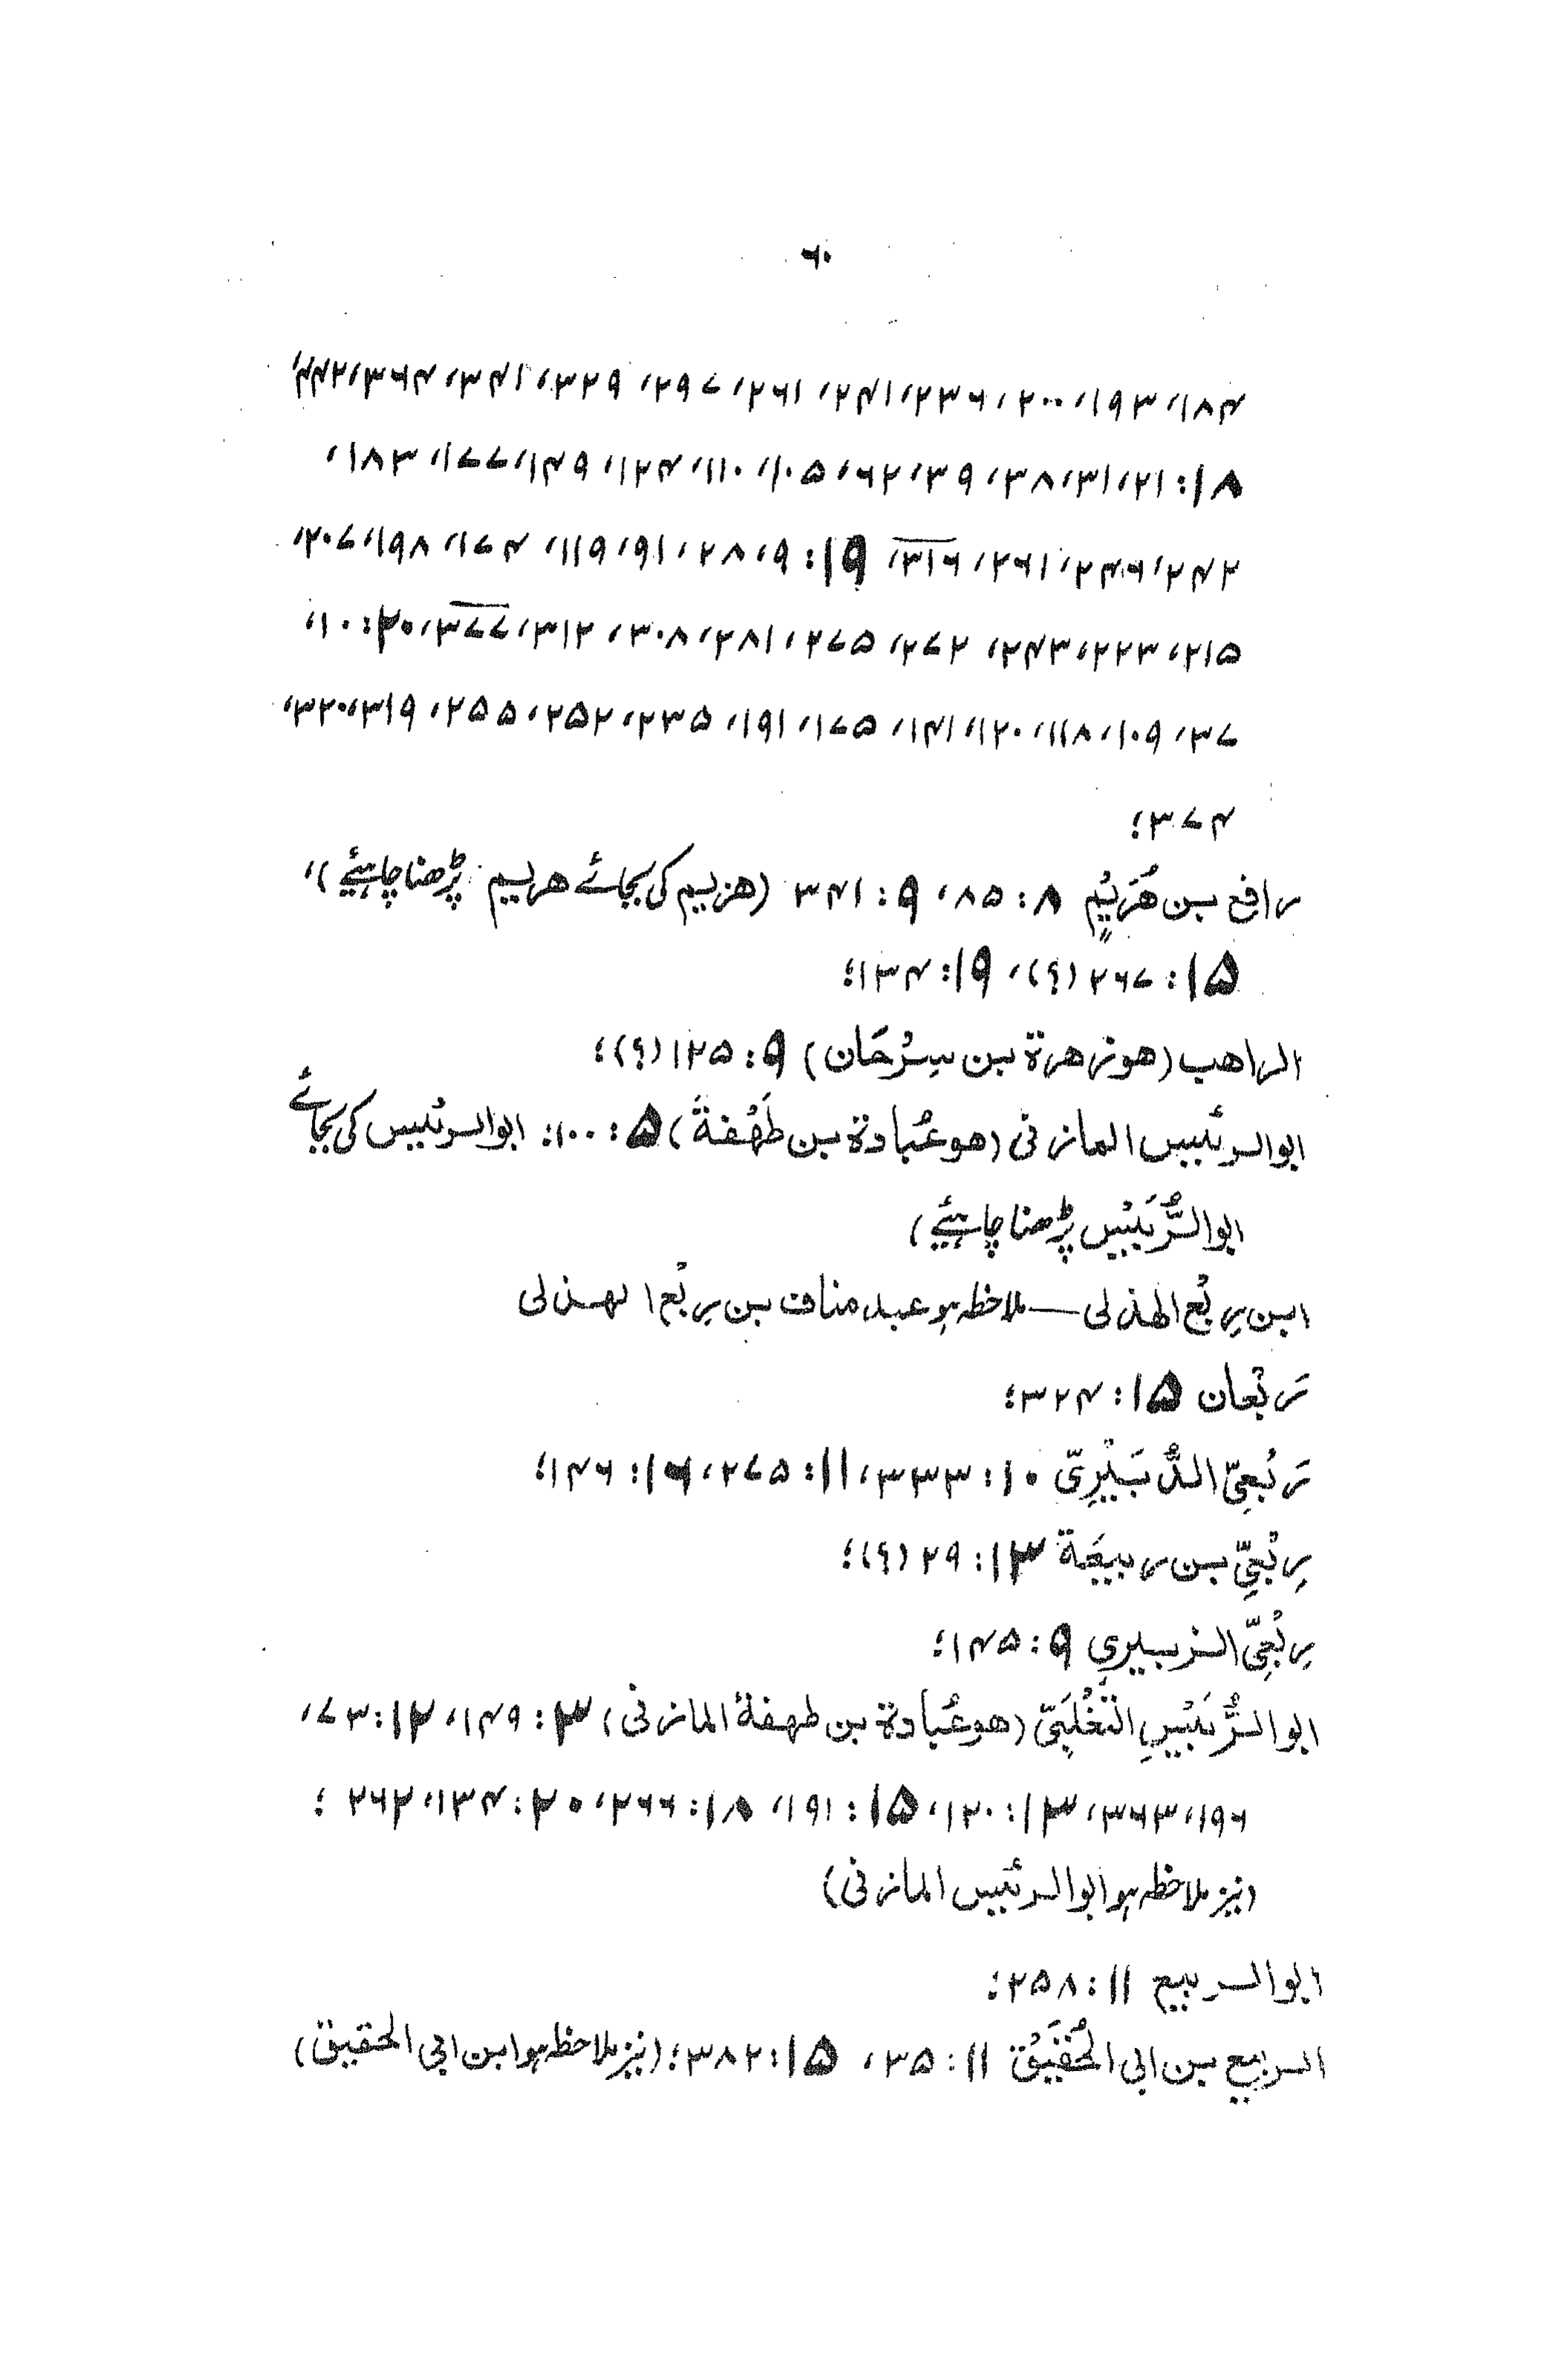 ۶۰
۱۸۴، ۱۹۳، ۲۰۰، ۲۳۶، ۲۴۱، ۲۶۱، ۲۹۷، ۳۲۹، ۳۴۱، ۳۶۴، ۴۴۲،
۱۸: ۲۱، ۳۱، ۳۸، ۳۹، ۶۲، ۱۰۵، ۱۱۰، ۱۲۴، ۱۴۹، ۱۷۷، ۱۸۳،
۲۴۲، ۲۴۶، ۲۶۱، ۳۱۶، ۱۹: ۹، ۲۸، ۹۱، ۱۱۹، ۱۷۴، ۱۹۸، ۲۰۷،
۲۱۵، ۲۲۳، ۲۴۳، ۲۷۲، ۲۷۵، ۲۸۱، ۳۰۸، ۳۱۲، ۳۷۷، ۲۰: ۱۰،
۳۷، ۱۰۹، ۱۱۸، ۱۲۰، ۱۴۱، ۱۷۵، ۱۹۱، ۲۳۵، ۲۵۲، ۲۵۵، ۳۱۹، ۳۲۰،
۳۷۴؛
رافع بن هُرَيْم ۸: ۸۵، ۹: ۳۴۱ (هزیم کی بجائے هریم پڑھنا چاہئیے)،
۱۵: ۲۶۷ (؟)، ۱۹: ۱۳۴؛
الراهب (هو زهرة بن سِرْحَان) ۹: ۱۲۵ (؟)؛
ابو الرئبیس المازنی (هو عُبادة بن طَهْفَة) ۵: ۱۰۰: ابو الرئبیس کی بجائے
ابو الرُّبَيْس پڑھنا چاہئیے)
ابن رِبْع الهذلی — ملاحظہ ہو عبد مناف بن رِبْع الهذلی
رَبْعان ۱۵: ۳۲۴؛
رَبْعِیّ الدُّبَيْرِیّ ۱۰: ۳۳۳، ۱۱: ۲۷۵، ۱۶: ۱۴۶؛
رِبْعِیّ بن ربیعَة ۱۳: ۲۹ (؟)؛
رِبْعِیّ الزبیری ۹: ۱۴۵؛
ابو الرُّبَيْسِ التَّغْلَبِیّ (هو عُبادة بن طهفة المازنی) ۳: ۱۴۹، ۱۲: ۷۳،
۱۹۶، ۳۶۳، ۱۳: ۱۲۰، ۱۵: ۱۹۱، ۱۸: ۲۶۶، ۲۰: ۱۳۴، ۲۶۲؛
(نیز ملاحظہ ہو ابو الرئبیس المازنی)
ابو الربیع ۱۱: ۲۵۸؛
الربیع بن ابی الحُقَيْق ۱۱: ۳۵، ۱۵: ۳۸۲؛ (نیز ملاحظہ ہو ابن ابی الحقیق)